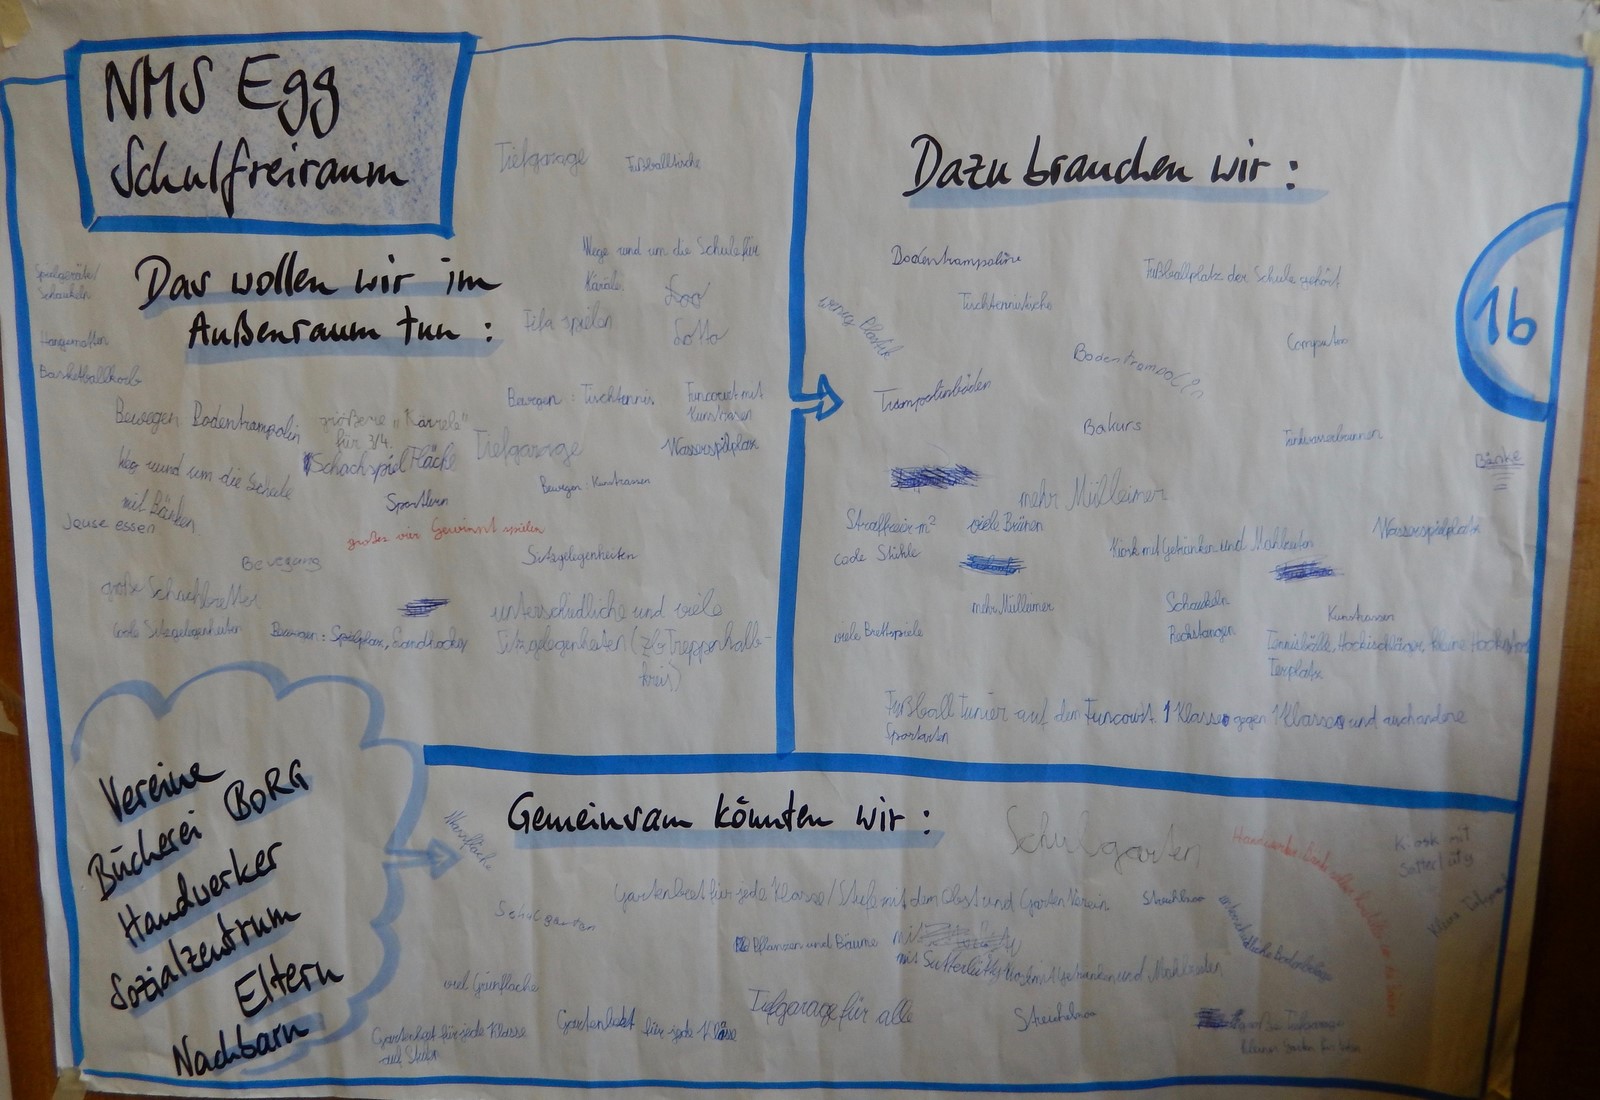 NMS Egg
Schulfreiraum
Tiefgarage
Fußballtische
Das wollen wir im
Außenraum tun :
Spielgeräte/
Schaukeln
Hängematten
Basketballkorb
Wege rund um die Schule für
Kärale
Zoo
Fifa spielen
Lotto
Bewegen : Tischtennis
Funcourt mit
Kunstrasen
Bewegen Bodentrampolin
größere „Kärrele"
für 3/4.
Schachspiel Fläche
Tiefgarage
Wasserspilplax
Weg rund um die Schule
mit Bänken
Jause essen
Sportlern
Bewegen : Kunstrasen
großes vier Gewinnt spielen
Bewegung
Sitzgelegenheiten
große Schachbretter
coole Sitzgelegenheiten
Bewegen : Spielplax, Landhockey
unterschiedliche und viele
Sitzgelegenheiten (zb Treppenhalb-
kreis)
Dazu brauchen wir :
1b
Bodentrampoline
Fußballplatz der Schule gehört
Tischtennistische
wenig Plastik
Computer
Bodentrampolin
Trampolinböden
Bakurs
Trinkwasserbrunnen
Bänke
mehr Mülleimer
viele Bränen
coole Stühle
Kiosk mit Getränken und Mahlzeiten
Wasserspielplatz
mehr Mülleimer
Schaukeln
Reckstangen
Kunstrassen
viele Brettspiele
Tennisbälle, Hockischläger, kleine Hockitore
Fußball Tunier auf dem Funcourt 1 Klasse gegen 1 Klasse und auch andere
Sportarten
Vereine
Bücherei BORG
Handwerker
Sozialzentrum
Eltern
Nachbarn
Gemeinsam könnten wir :
Nassfläche
Schulgarten
Kiosk mit
Sutterlüty
Gartenbeet für jede Klasse/Stufe mit dem Obst und Garten Verein
Streichelzoo
Schulgarten
Pflanzen und Bäume
mit Sutterlüty Kiosk mit Getränken und Mahlzeiten
unterschiedliche Bodenbeläge
viel Grünfläche
Tiefgarage für alle
Streichelzoo
Gartenbeet für jede Klasse
und Stufe
Gartenbeet für jede Klasse